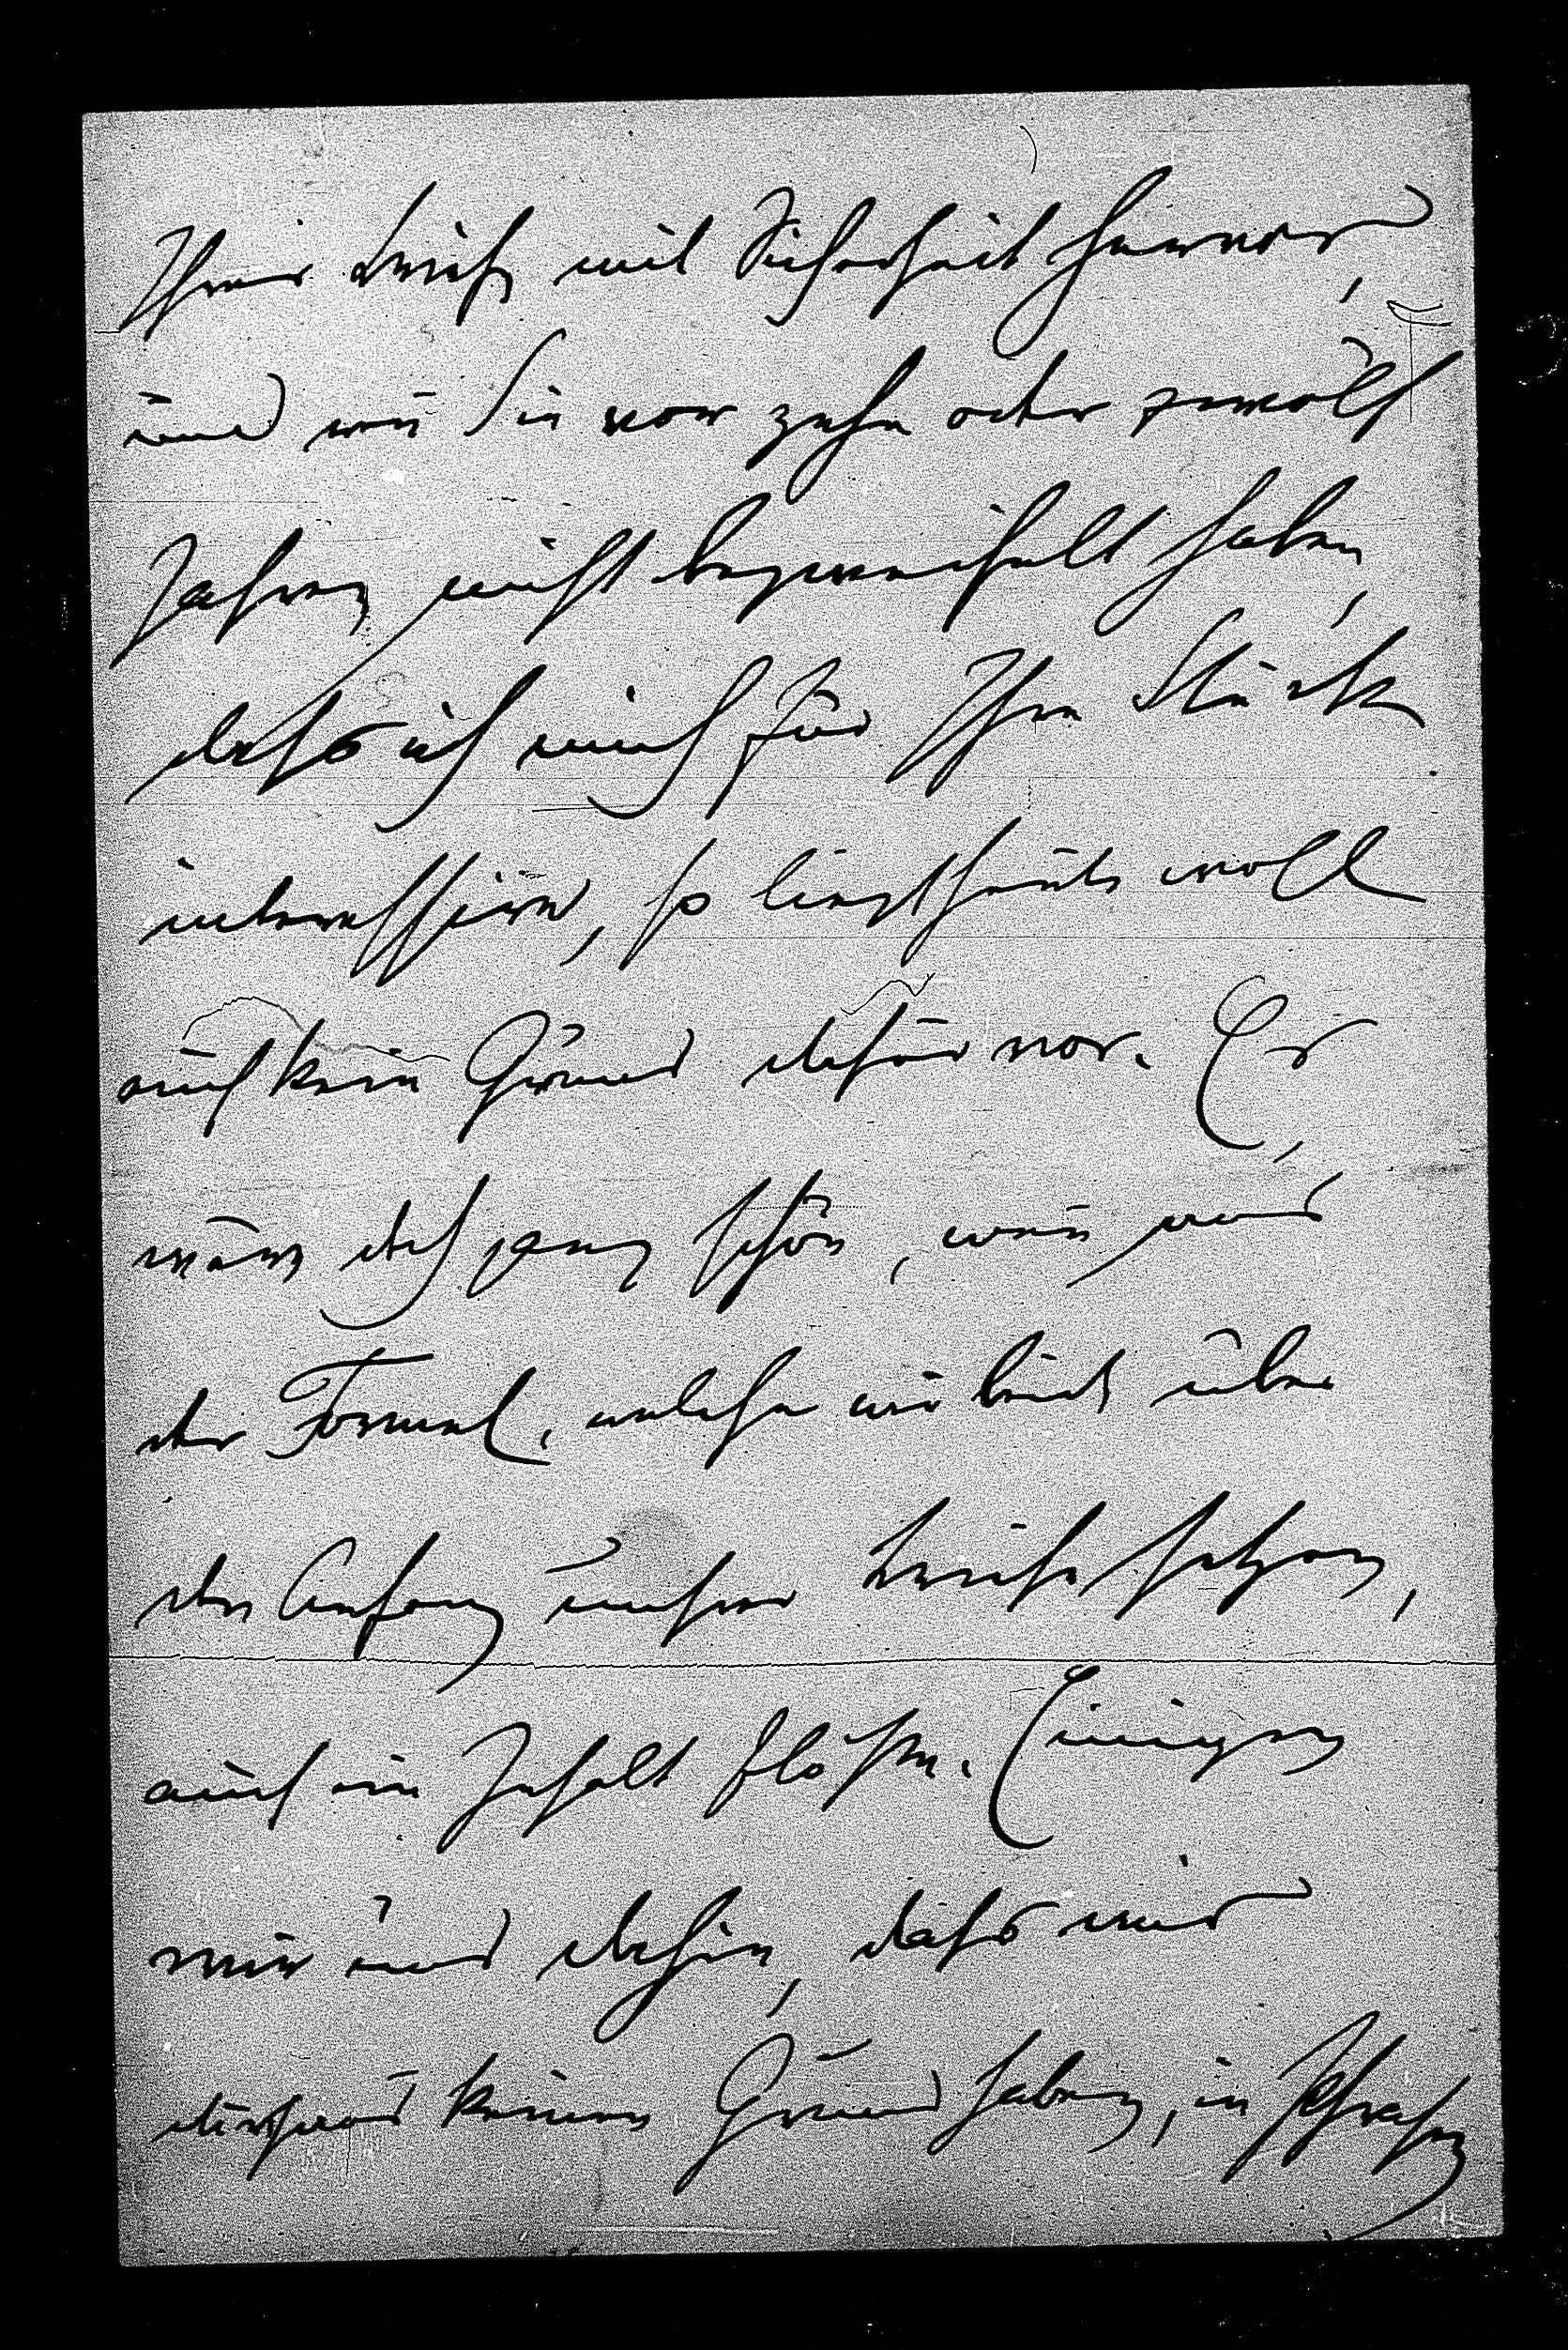 Ihrer Briefe mit Sicherheit hervor,
und wenn Sie vor zehn oder zwölf
Jahren nicht bezweifelt haben,
dass ich mich für Ihre Stücke
interessire, so liegt heute wohl
auch kein Grund dafür vor. Es
wäre doch ganz schön, wenn
der Formel, welche wir beide über
den Anfang unsrer Briefe setzen,
auch ein Inhalt flösse. Einigen
wir uns dahin, dass wir
durchaus keinen Grund haben, in